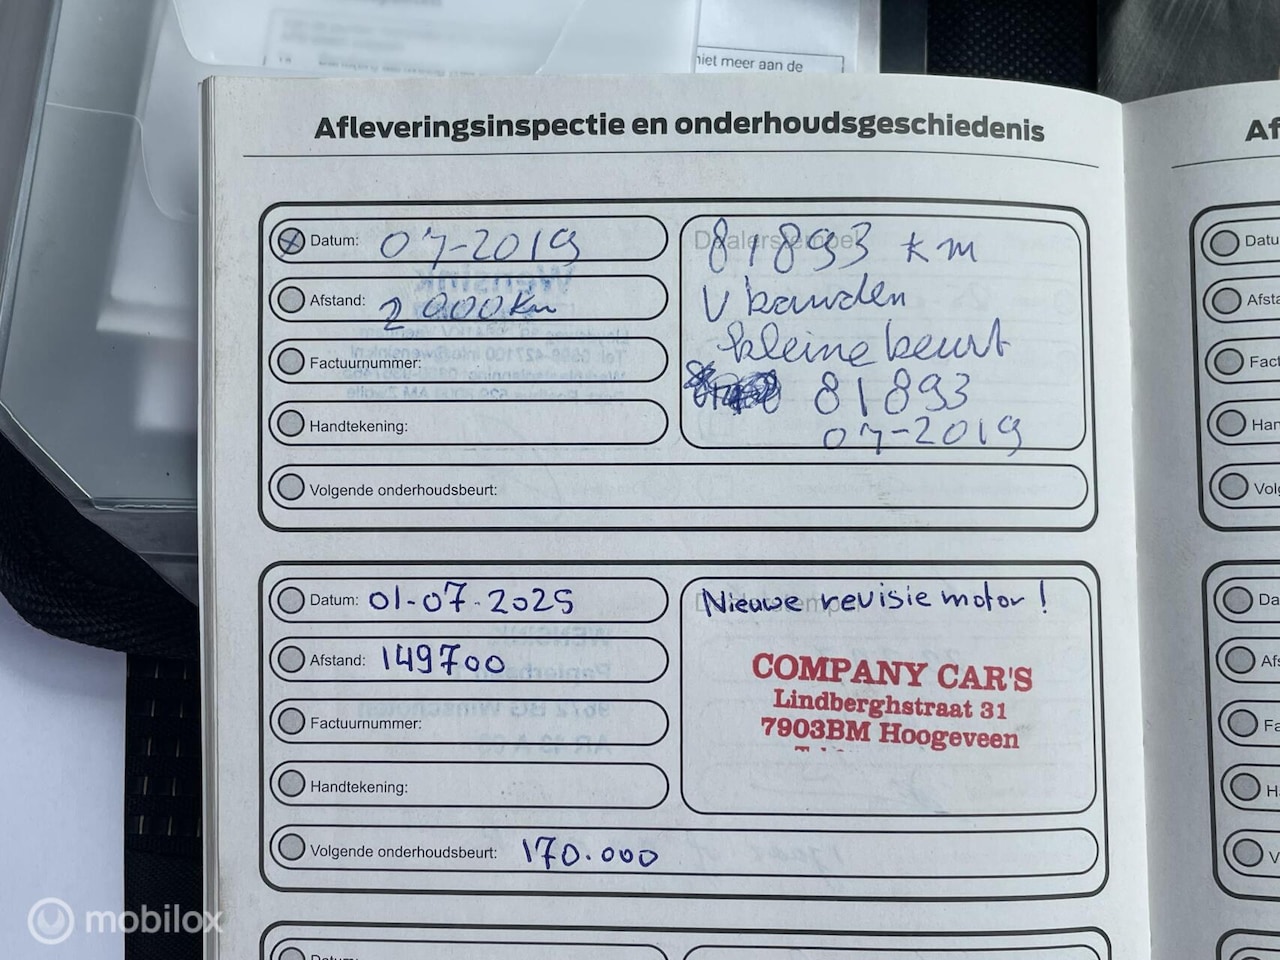 niet meer aan de
Afleveringsinspectie en onderhoudsgeschiedenis
Af
Datum: 07-2019
Afstand: 2 000 Km
Factuurnummer:
Handtekening:
Volgende onderhoudsbeurt:
Dealerstempel
81893 km
V banden
kleine beurt
81893
07-2019
Datu
Afsta
Fact
Han
Volg
Datum: 01-07-2025
Afstand: 149700
Factuurnummer:
Handtekening:
Volgende onderhoudsbeurt: 170.000
Nieuwe revisie motor!
COMPANY CAR'S
Lindberghstraat 31
7903BM Hoogeveen
Da
Afs
Fa
H
V
Datum:
mobilox